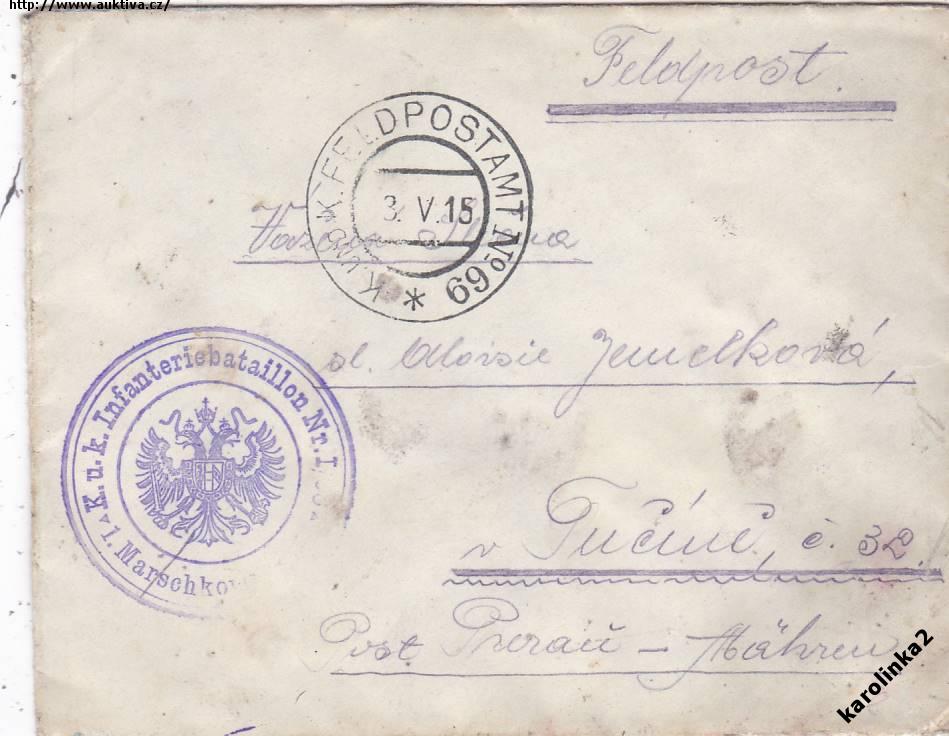 http://www.auktiva.cz/
Feldpost.
K. UND K. FELDPOSTAMT No 69 *
3. V. 15
a
K. u. k. Infanteriebataillon Nr. I
1. Marschko
sl. Aloisie Jemelková,
v Tučíně, č. 32
Post Prerau – Mähren
karolinka2